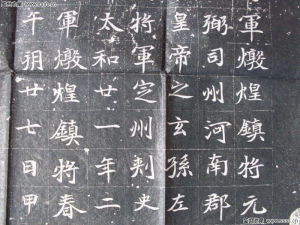 軍燉煌鎮將元
弼司州河南郡
皇帝之玄孫左
將軍定州刾史
太和廿一年二
軍燉煌鎮將春
午朔廿七日甲